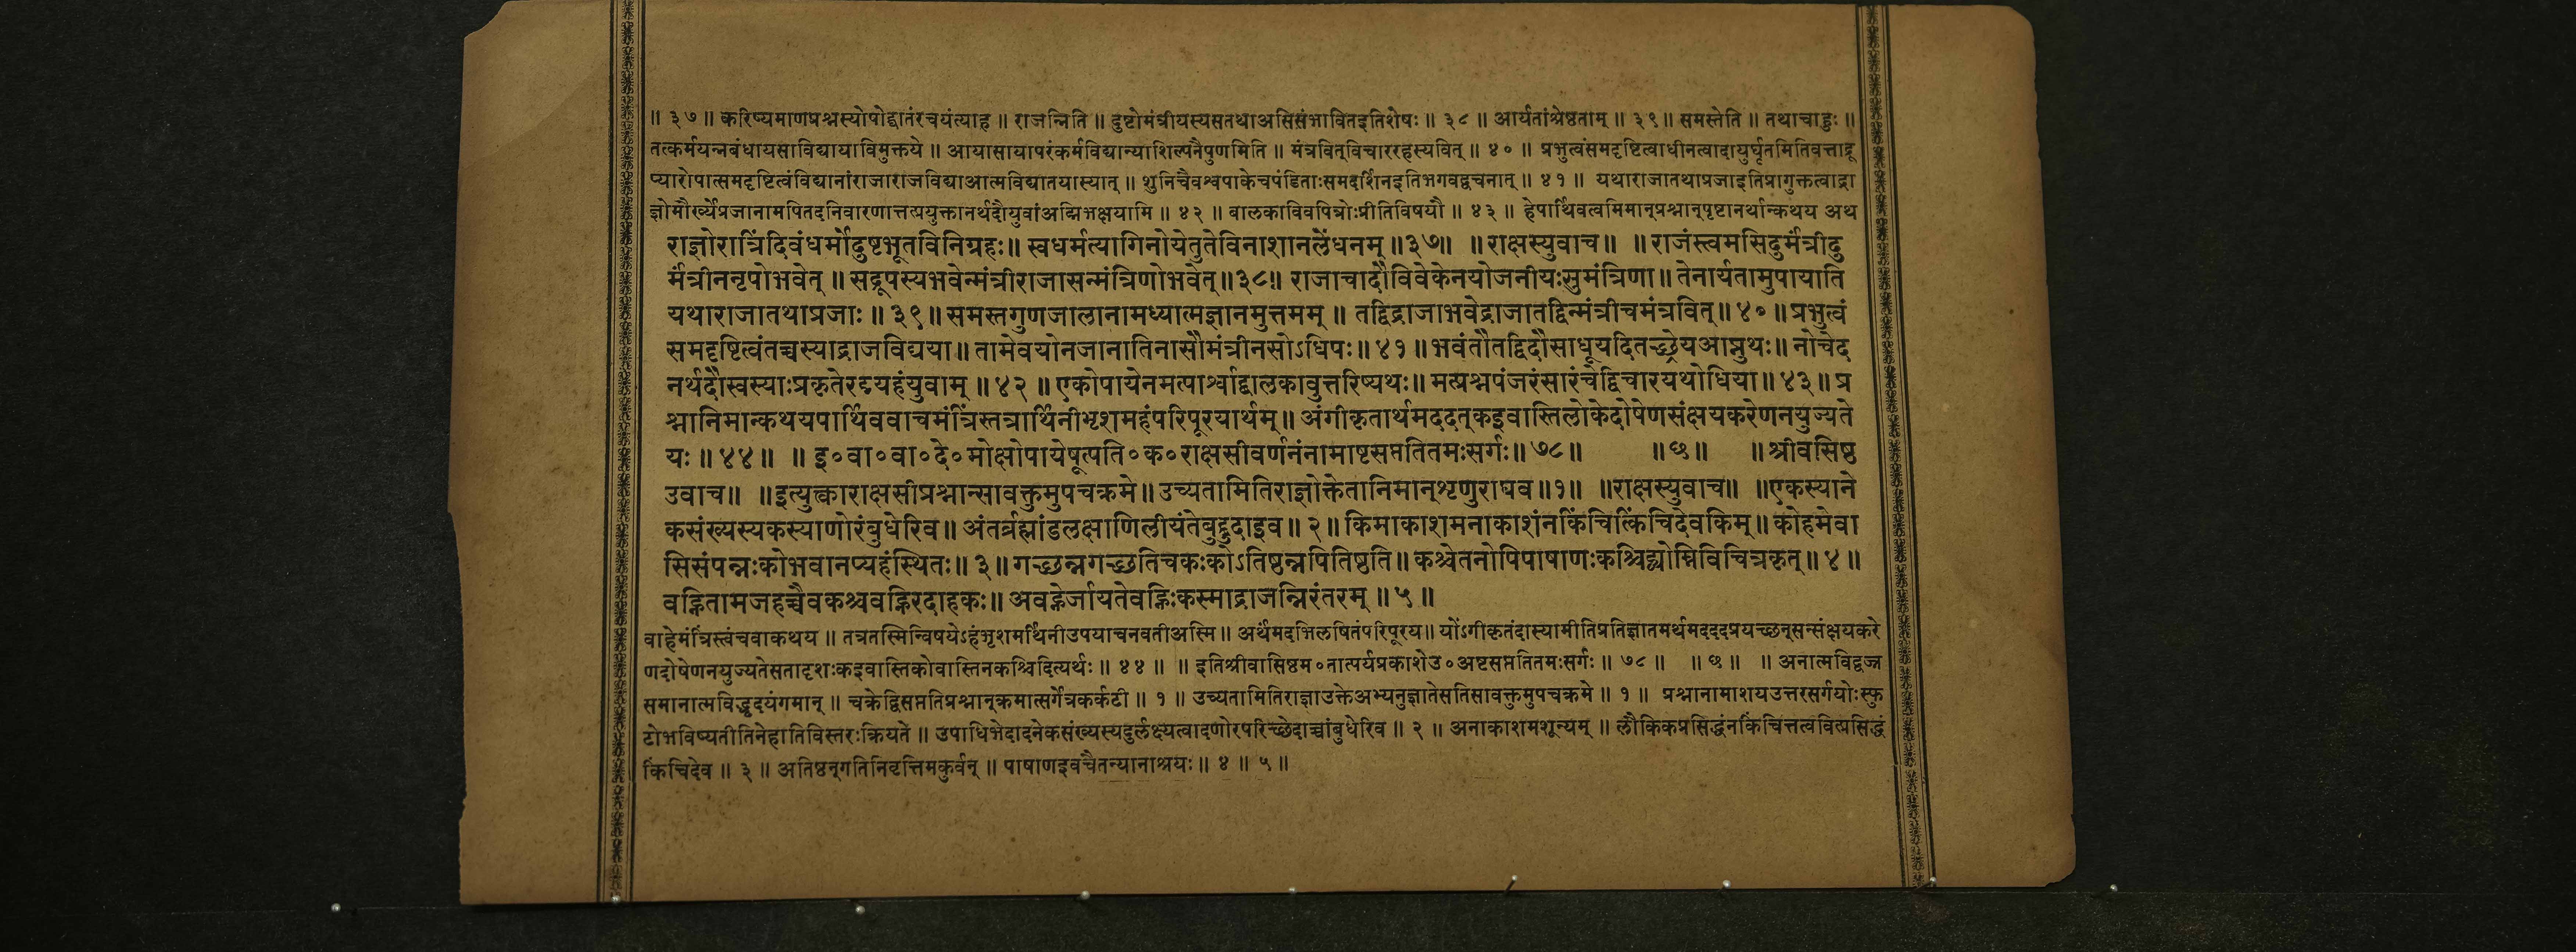 ॥ ३७ ॥ करिष्यमाणप्रश्नस्योपोद्घातंरचयंत्याह ॥ राजन्निति ॥ दुष्टोमंत्रीयस्यसतथाअसिसंभावितइतिशेषः ॥ ३८ ॥ आर्यतांश्रेष्ठताम् ॥ ३९ ॥ समस्तेति ॥ तथाचाहुः ॥
तत्कर्मयन्नबंधायसाविद्यायाविमुक्तये ॥ आयासायापरंकर्मविद्यान्याशिल्पनैपुणमिति ॥ मंत्रवित्विचाररहस्यवित् ॥ ४० ॥ प्रभुत्वंसमदृष्टित्वाधीनत्वादायुर्घृतमितिवत्ताद्रू
प्यारोपात्समदृष्टित्वंविद्यानांराजाराजविद्याआत्मविद्यातयास्यात् ॥ शुनिचैवश्वपाकेचपंडिताःसमदर्शिनइतिभगवद्वचनात् ॥ ४१ ॥ यथाराजातथाप्रजाइतिप्रागुक्तत्वाद्रा
ज्ञोमौर्ख्येप्रजानामपितदनिवारणात्तत्प्रयुक्तानर्थदौयुवांअद्मिभक्षयामि ॥ ४२ ॥ बालकाविवपित्रोःप्रीतिविषयौ ॥ ४३ ॥ हेपार्थिवत्वमिमान्प्रश्नान्पृष्टानर्थान्कथय अथ
राज्ञोरात्रिंदिवंधर्मोदुष्टभूतविनिग्रहः॥ स्वधर्मत्यागिनोयेतुतेविनाशानलेंधनम् ॥३७॥ ॥राक्षस्युवाच॥ ॥राजंस्त्वमसिदुर्मंत्रीदु
र्मंत्रीननृपोभवेत् ॥ सद्रूपस्यभवेन्मंत्रीराजासन्मंत्रिणोभवेत्॥३८॥ राजाचादौविवेकेनयोजनीयःसुमंत्रिणा॥ तेनार्यतामुपायाति
यथाराजातथाप्रजाः ॥ ३९॥ समस्तगुणजालानामध्यात्मज्ञानमुत्तमम् ॥ तद्विद्राजाभवेद्राजातद्विन्मंत्रीचमंत्रवित्॥४०॥ प्रभुत्वं
समदृष्टित्वंतच्चस्याद्राजविद्यया॥ तामेवयोनजानातिनासौमंत्रीनसोऽधिपः॥४१॥भवंतौतद्विदौसाधूयदितच्छ्रेयआप्नुथः॥ नोचेद
नर्थदौस्वस्याःप्रकृतेरद्म्यहंयुवाम् ॥ ४२ ॥ एकोपायेनमत्पार्श्वाद्बालकावुत्तरिष्यथः॥ मत्प्रश्नपंजरंसारंचेद्विचारयथोधिया॥ ४३॥ प्र
श्नानिमान्कथयपार्थिववाचमंत्रिंस्तत्रार्थिनीभृशमहंपरिपूरयार्थम्॥ अंगीकृतार्थमददत्कइवास्तिलोकेदोषेणसंक्षयकरेणनयुज्यते
यः ॥ ४४॥ ॥ इ०वा०वा०दे०मोक्षोपायेषूत्पति०क०राक्षसीवर्णनंनामाष्टसप्ततितमःसर्गः॥ ७८॥ ॥ छ॥ ॥ श्रीवसिष्ठ
उवाच॥ ॥इत्युक्त्वाराक्षसीप्रश्नान्सावक्तुमुपचक्रमे॥ उच्यतामितिराज्ञोक्तेतानिमान्शृणुराघव॥१॥ ॥राक्षस्युवाच॥ ॥एकस्याने
कसंख्यस्यकस्याणोरंबुधेरिव॥ अंतर्ब्रह्मांडलक्षाणिलीयंतेबुद्बुदाइव॥ २॥ किमाकाशमनाकाशंनकिंचित्किंचिदेवकिम्॥ कोहमेवा
सिसंपन्नःकोभवानप्यहंस्थितः॥ ३॥ गच्छन्नगच्छतिचकःकोऽतिष्ठन्नपितिष्ठति॥ कश्चेतनोपिपाषाणःकश्चिद्व्योम्निविचित्रकृत्॥ ४॥
वह्नितामजहच्चैवकश्चवह्निरदाहकः॥ अवह्नेर्जायतेवह्निःकस्माद्राजन्निरंतरम् ॥ ५ ॥
वाहेमंत्रिंस्त्वंचवाकथय ॥ तत्रतस्मिन्विषयेऽहंभृशमर्थिनीउपयाचनवतीअस्मि॥ अर्थंमदभिलषितंपरिपूरय॥ योंऽगीकृतंदास्यामीतिप्रतिज्ञातमर्थमददप्रयच्छन्सन्संक्षयकरे
णदोषेणनयुज्यतेसतादृशःकइवास्तिकोवास्तिनकश्चिदित्यर्थः ॥ ४४ ॥ ॥ इतिश्रीवासिष्ठम०तात्पर्यप्रकाशेउ०अष्टसप्ततितमःसर्गः ॥ ७८ ॥ ॥ छ ॥ ॥ अनात्मविद्वज्र
समानात्मविद्धृदयंगमान् ॥ चक्रेद्विसप्ततिप्रश्नान्क्रमात्सर्गेत्रकर्कटी ॥ १ ॥ उच्यतामितिराज्ञाउक्तेअभ्यनुज्ञातेसतिसावक्तुमुपचक्रमे ॥ १ ॥ प्रश्नानामाशयउत्तरसर्गयोःस्फु
टोभविष्यतीतिनेहातिविस्तरःक्रियते ॥ उपाधिभेदादनेकसंख्यस्यदुर्लक्ष्यत्वादणोरपरिच्छेदाच्चांबुधेरिव ॥ २ ॥ अनाकाशमशून्यम् ॥ लौकिकप्रसिद्धंनकिंचित्तत्त्ववित्प्रसिद्धं
किंचिदेव ॥ ३ ॥ अतिष्ठन्गतिनिवृत्तिमकुर्वन् ॥ पाषाणइवचैतन्यानाश्रयः ॥ ४ ॥ ५ ॥